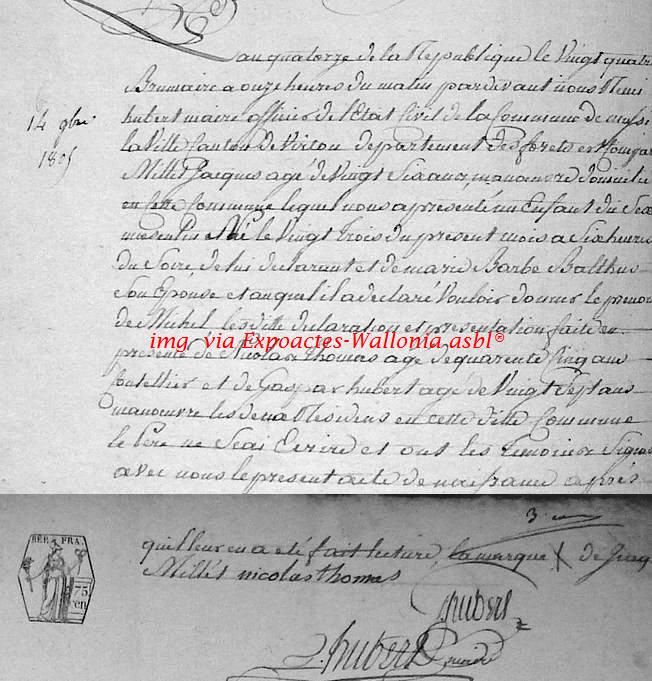 an quatorze de la Republique le vingt quatre
Brumaire a onze heures du matin pardevant nous
hubert maire officier de l'Etat Civil de la Commune de
la Ville Canton de Virton departement des forets est
Millet Jacques agé de Vingt Six ans, manœuvre domicilié
en cette Commune lequel nous a presenté un Enfant du Sexe
masculin et Né le Vingt trois du present mois a Six heures
du Soire, de lui declarant et de marie Barbe Balthus
Son Epouse et auquel il a declaré Vouloir donner le prenom
de Michel, les ditte declaration et presentation faite en
presence de Nicolas thomas agé de quarente Cinq ans
et de Gaspar hubert agé de Vingt Sept ans
manœuvre les deux Residens en cette ditte Commune
le Pere ne Scai Ecrire et ont les temoins Signés
avec nous le present acte de naissance après
14 9bre
1805
img via Expoactes-Wallonia asbl®
REP. FRA.
75
cen
qu'il leur en a été fait lecture, la marque X de
Millet nicolas thomas
hubert
hubert